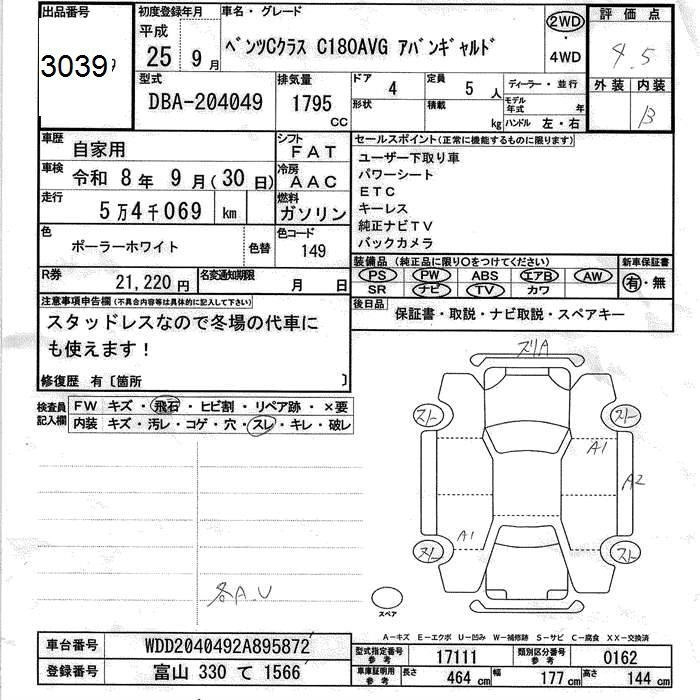 出品番号 初度登録年月 車名・グレード 2WD 評価点
平成
3039ｱ 25 年 9 月 ﾍﾞﾝﾂCクラス C180AVG アバンギャルド ・ 4WD 4.5
型式 排気量 ドア 4 定員 5 人 ディーラー・並行 外装 内装
DBA-204049 1795 cc 形状 積載 kg モデル年式 年 B
ハンドル 左・右
車歴 自家用 シフト FAT セールスポイント(正常に機能するものに限ります)
車検 令和 8 年 9 月 (30 日) 冷房 AAC ユーザー下取り車
走行 5万4千069 km 燃料 ガソリン パワーシート
ETC
キーレス
純正ナビTV
バックカメラ
色 ポーラーホワイト 色替 色コード 149
装備品(純正品に限り○をつけてください) 新車保証書
PS PW ABS エアB AW 有・無
SR ナビ TV カワ
R券 21,220円 名変通知期限 月 日
後日品 保証書・取説・ナビ取説・スペアキー
注意事項申告欄(不具合内容等は具体的に記入して下さい)
スタッドレスなので冬場の代車に
も使えます！
修復歴 有〔箇所 〕
検査員記入欄 FW キズ・飛石・ヒビ割・リペア跡・×要
内装 キズ・汚レ・コゲ・穴・スレ・キレ・破レ
ズリA
スト スト
A1
A2
A1
スト スト
各A.U
スペア
A－キズ E－エクボ U－凹み W－補修跡 S－サビ C－腐食 XX－交換済
車台番号 WDD2040492A895872 型式指定番号 参考 17111 類別区分番号 参考 0162
登録番号 富山 330 て 1566 車庫証明用 参考 長さ 464 cm 幅 177 cm 高さ 144 cm